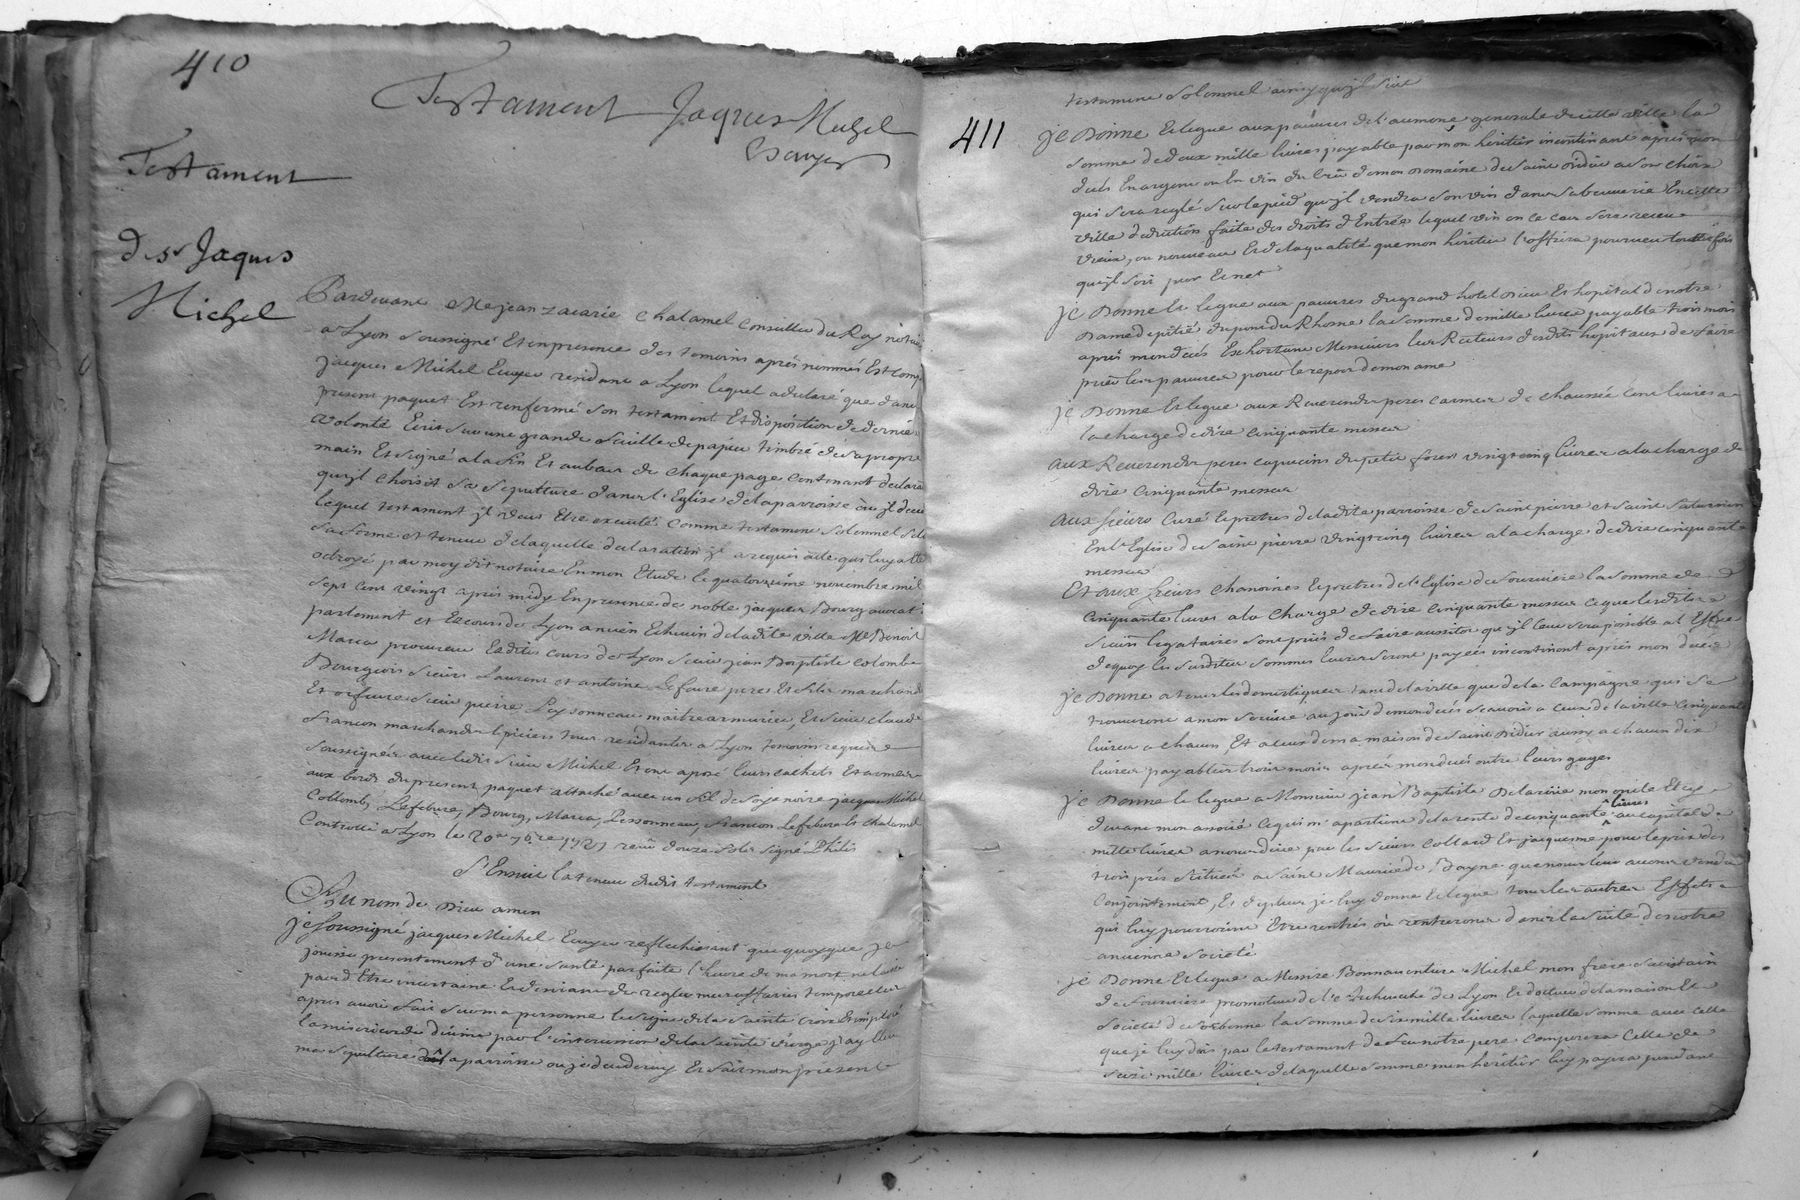 410
Testament Jaques Michel
Ecuyer
Testament
de Sr Jaques
Michel
Pardevant Me jean zacarie Chalamel Conseiller du Roy notaire
a Lyon soussigné Et en presence des temoins aprés nommés Est comp
jacques Michel Ecuyer residant a Lyon lequel a declaré que dans
present paquet Est renfermé son testament Et disposition de derniere
volonté Ecrit sur une grande feuille de papier timbré de sa propre
main Et signé a la fin Et au bas de chaque page contenant declara
qu'jl choisit sa sepulture dans l'Eglise de la parroisse où jl dece
lequel testament jl veut Etre executé comme testament solemnel selo
sa forme et teneur de laquelle declaration jl a requis acte qui luy a été
octroyé par moy dit notaire En mon Etude le quatorzieme novembre mil
sept cent vingt aprés midy En presence de noble jacques Bourg avocat
parlement et Es cours de Lyon ancien Echevin de ladite ville Me Benoit
Marca procureur Esdites cours de Lyon sieur jean Baptiste Colombe
Bourgeois sieurs Laurent et antoine Lefebure pere Et fils marchands
Et orfevres sieur pierre Peysonneau maitre armurier, Et sieur claude
francon marchands Epiciers tous residants a Lyon temoins requis
soussignés avec ledit sieur Michel Et ont aposé leurs cachets Et armes
aux bords du present paquet attaché avec un fil de soye noire jacques Michel
Collomb, Lefebure, Bourg, Marca, Pessonneau, francon Lefebure les Chalamel
Controllé a Lyon le 20e 9bre 1721 receu douze sols signé Philis
S'Ensuit la teneur dudit testament
Au nom de Dieu amen
je soussigné jacques Michel Ecuyer reflechissant que quoyque je
jouisse presentement d'une santé parfaite l'heure de ma mort ne laisse
pas d'Etre incertaine Et desirant de regler mes affaires temporelles
apres avoir fait sur ma personne le signe de la sainte croix Et imploré
la misericorde divine par l'intercession de la sainte vierge j'ay Elu
ma sepulture la parroisse ou je decederay Et fait mon present
testament solemnel ainsy qu'jl suit
411
je Donne Et legue aux pauvres de l'aumone generale de cette ville la
somme de deux mille livres payable par mon heritier incontinant aprés mon
decés En argent ou En vin du crû de mon Domaine de saint Didier a son choix
qui sera reglé sur le pied qu'jl vendra son vin dans sa beuverie En cette
ville deduction faite des droits d'Entrée lequel vin en ce cas sera receu
vieux, ou nouveau Et de la qualité que mon heritier l'offrira pourveu toutefois
qu'jl soit pur Et net
je Donne Et legue aux pauvres du grand hotel Dieu Et hopital de notre
Dame de pitié du pont du Rhosne la somme de mille livres payable trois mois
aprés mon decés Exhortant Messieurs les Recteurs desdits hopitaux de faire
prier les pauvres pour le repos de mon ame
je Donne Et legue aux Reverends peres carmes de chaussés cent livres a
la charge de dire cinquante messes
aux Reverends peres capucins du petit forest vingt cinq livres a la charge de
dire cinquante messes
aux sieurs Curé Et pretres de ladite parroisse de saint pierre et saint saturnin
En l'Eglise de saint pierre vingt cinq livres a la charge de dire cinquante
messes
Et aux sieurs chanoines Et pretres de l'Eglise de fourviere la somme de
cinquante livres a la charge de dire cinquante messes ce que lesdits
sieurs legataires sont priés de faire aussitot que jl leur sera possible a l'Effet
de quoy les susdites sommes leurs seront payées incontinent aprés mon decés
je Donne a tous les domestiques tant de la ville que de la campagne qui se
trouveront a mon service au jour de mon decés scavoir a ceux de la ville cinquante
livres a chacun Et a ceux de ma maison de saint Didier aussy a chacun dix
livres payables trois mois aprés mon decés outre leurs gages
je Donne Et legue a Monsieur jean Baptiste Delarüe mon oncle Et cy
devant mon associé ce qui m'apartient de la rente de cinquante livres au capital de
mille livres a nous düe par les sieurs Collard Et jaquesme pour le prix des
trois prés scitués a saint Maurice de Bayne que nous leur avons vendu
conjointement, Et de plus je luy donne Et legue tous les autres Effets
qui luy pourroient Etre rentrés ou rentreront dans la suite de notre
ancienne societé
je Donne Et legue a Messire Bonnaventure Michel mon frere sacristain
de fourviere promoteur de l'archeveché de Lyon Et docteur de la maison Et
societé de sorbonne la somme de six mille livres laquelle somme avec celle
que je luy dois par le testament de feu notre pere composera celle de
seize mille livres de laquelle somme mon heritier luy payera pendant